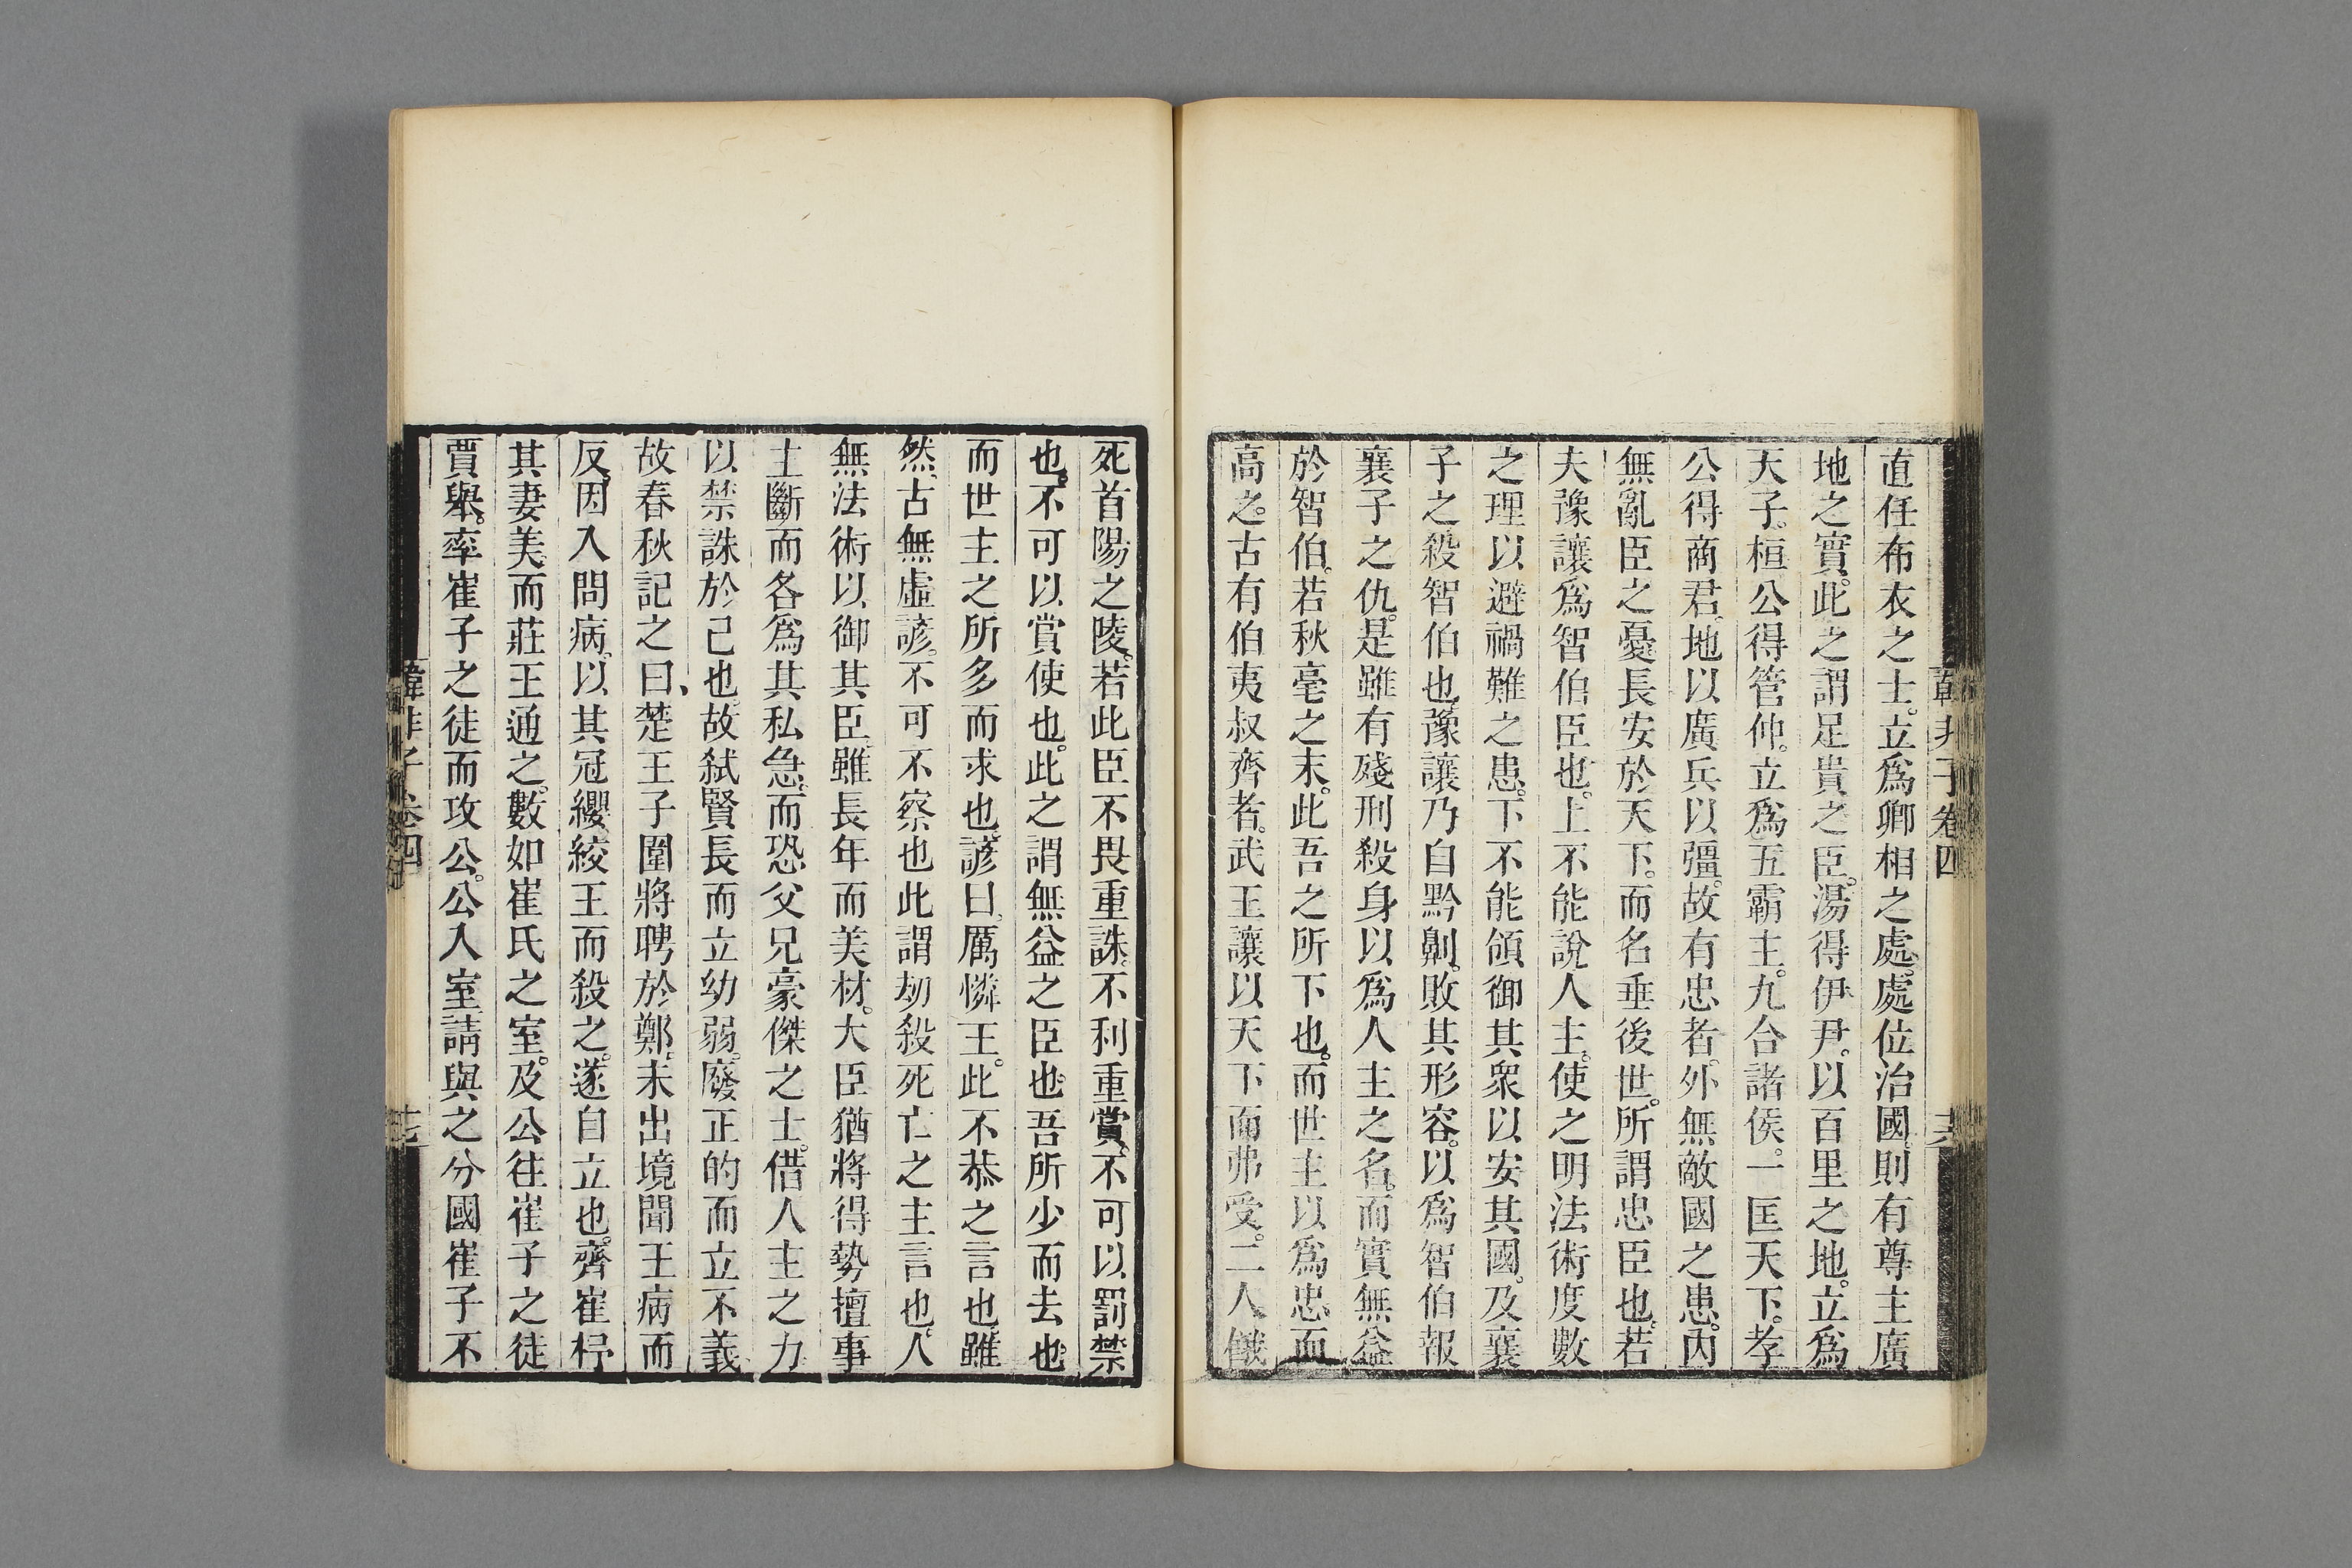 直任布衣之士。立爲卿相之處。處位治國。則有尊主廣
地之實。此之謂足貴之臣。湯得伊尹。以百里之地。立爲
天子。桓公得管仲。立爲五霸主。九合諸侯。一匡天下。孝
公得商君。地以廣兵以彊。故有忠者。外無敵國之患。內
無亂臣之憂。長安於天下。而名垂後世。所謂忠臣也。若
夫豫讓爲智伯臣也。上不能說人主。使之明法術度數
之理以避禍難之患。下不能領御其衆以安其國。及襄
子之殺智伯也。豫讓乃自黔劓。敗其形容。以爲智伯報
襄子之仇。是雖有殘刑殺身以爲人主之名。而實無益
於智伯。若秋毫之末。此吾之所下也。而世主以爲忠。而
高之。古有伯夷叔齊者。武王讓以天下而弗受。二人餓
韓非子卷四
死首陽之陵。若此臣不畏重誅。不利重賞。不可以罰禁
也。不可以賞使也。此之謂無益之臣也。吾所少而去也。
而世主之所多而求也。諺曰。厲憐王。此不恭之言也。雖
然。古無虛諺。不可不察也此謂劫殺死亡之主言也。人
無法術以御其臣。雖長年而美材。大臣猶將得勢擅事
主斷而各爲其私急。而恐父兄豪傑之士。借人主之力
以禁誅於己也。故弑賢長而立幼弱。廢正的而立不義
故春秋記之曰、楚王子圍將聘於鄭。未出境聞王病而
反。因入問病。以其冠纓絞王而殺之。遂自立也。齊崔杼
其妻美。而莊王通之。數如崔氏之室。及公往崔子之徒
賈舉。率崔子之徒而攻公。公入室請與之分國崔子不
韓非子卷四
十七